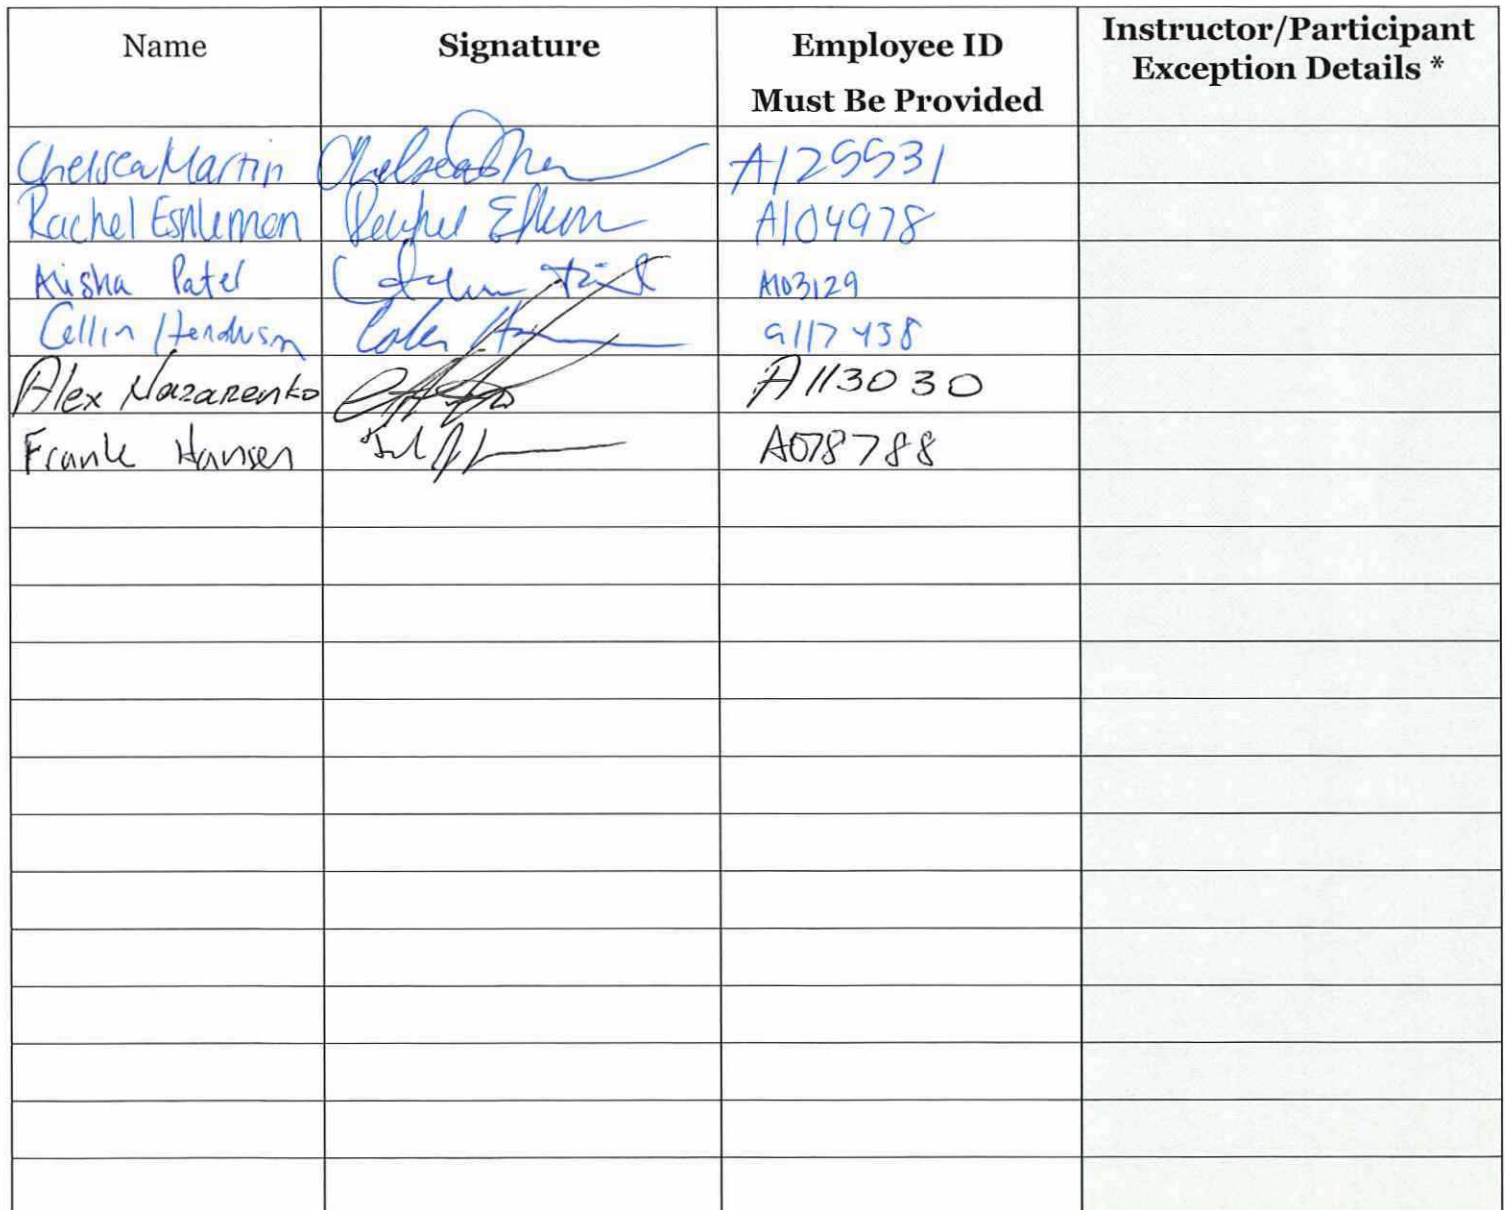 Name Signature Employee ID Instructor/Participant
Must Be Provided Exception Details *
Chelsea Martin A125531
Rachel Eshleman A104978
Aisha Patel A103129
Collin Henderson a117438
Alex Nazarenko A113030
Frank Hansen A078788